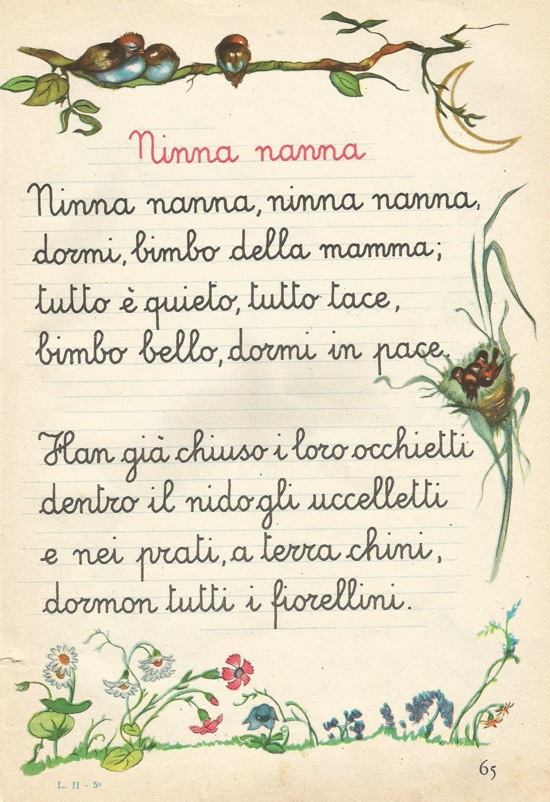 Ninna nanna
Ninna nanna, ninna nanna,
dormi, bimbo della mamma;
tutto è quieto, tutto tace,
bimbo bello, dormi in pace.
Han già chiuso i loro occhietti
dentro il nido gli uccelletti
e nei prati, a terra chini,
dormon tutti i fiorellini.
65
L. II - 5º